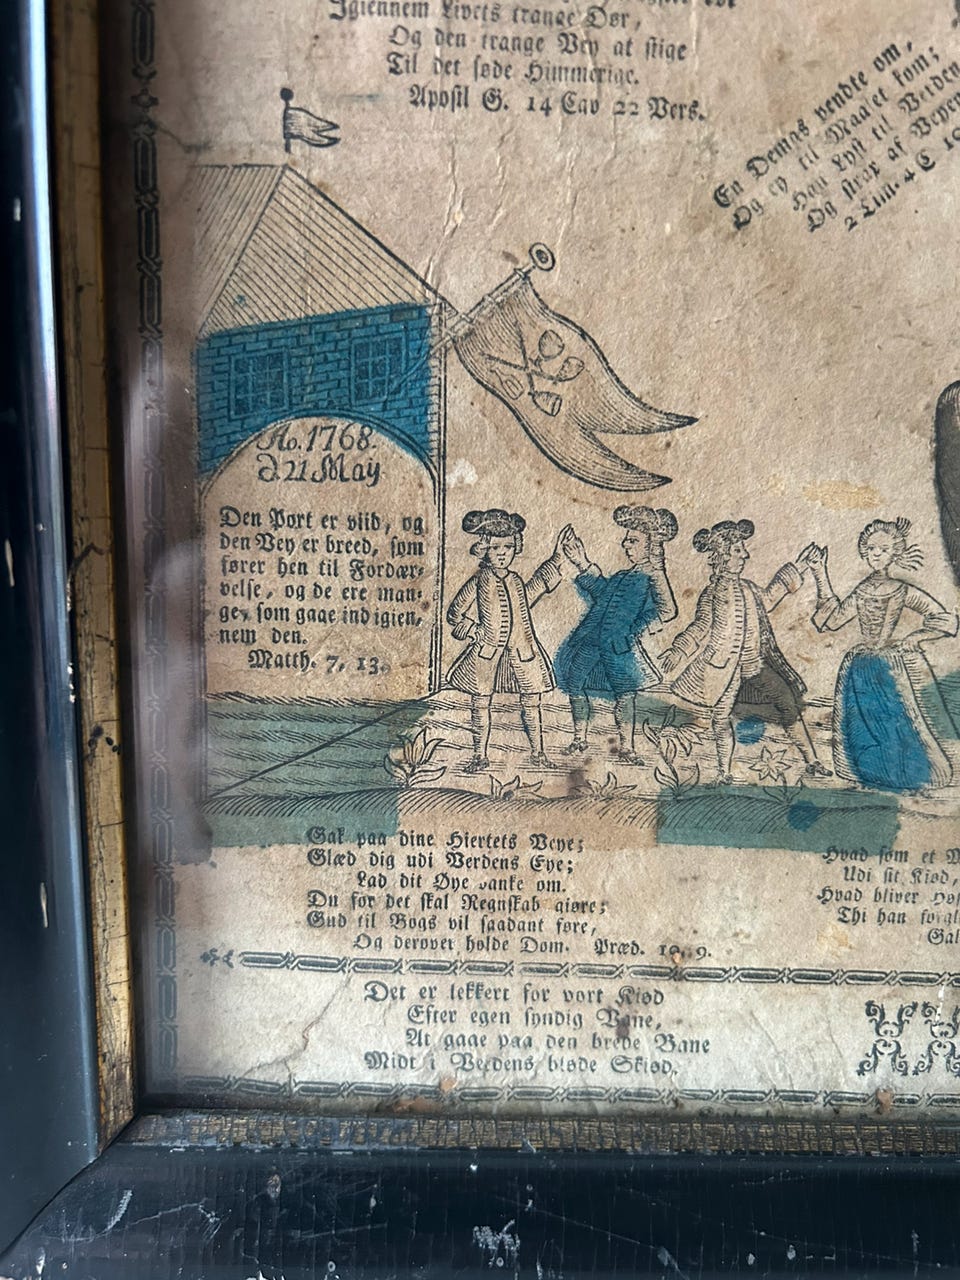 Igiennem Livets trange Dør,
Og den trange Vey at stige
Til det søde Himmerige.
Apostl G. 14 Cap 22 Vers.
En Demas vendte om,
Og ey til Maalet kom;
Han Lyst til Verden
Og strax af Veyen
2 Tim. 4 C 10
Ao. 1768.
d 21 May
Den Port er viid, og
den Vey er breed, som
fører hen til Fordær-
velse, og de ere man-
ge, som gaae ind igien-
nem den.
Matth. 7, 13.
Gak paa dine Hiertets Veye;
Glæd dig udi Verdens Eye;
Lad dit Øye vanke om.
Du for det skal Regnskab giøre;
Gud til Bogs vil saadant føre,
Og derover holde Dom. Præd.
Hvad som et
Udi sit Kiød,
Hvad bliver
Thi han
Gal
Det er lekkert for vort Kiød
Efter egen syndig Vane,
At gaae paa den brede Bane
Midt i Verdens bløde Skiød.